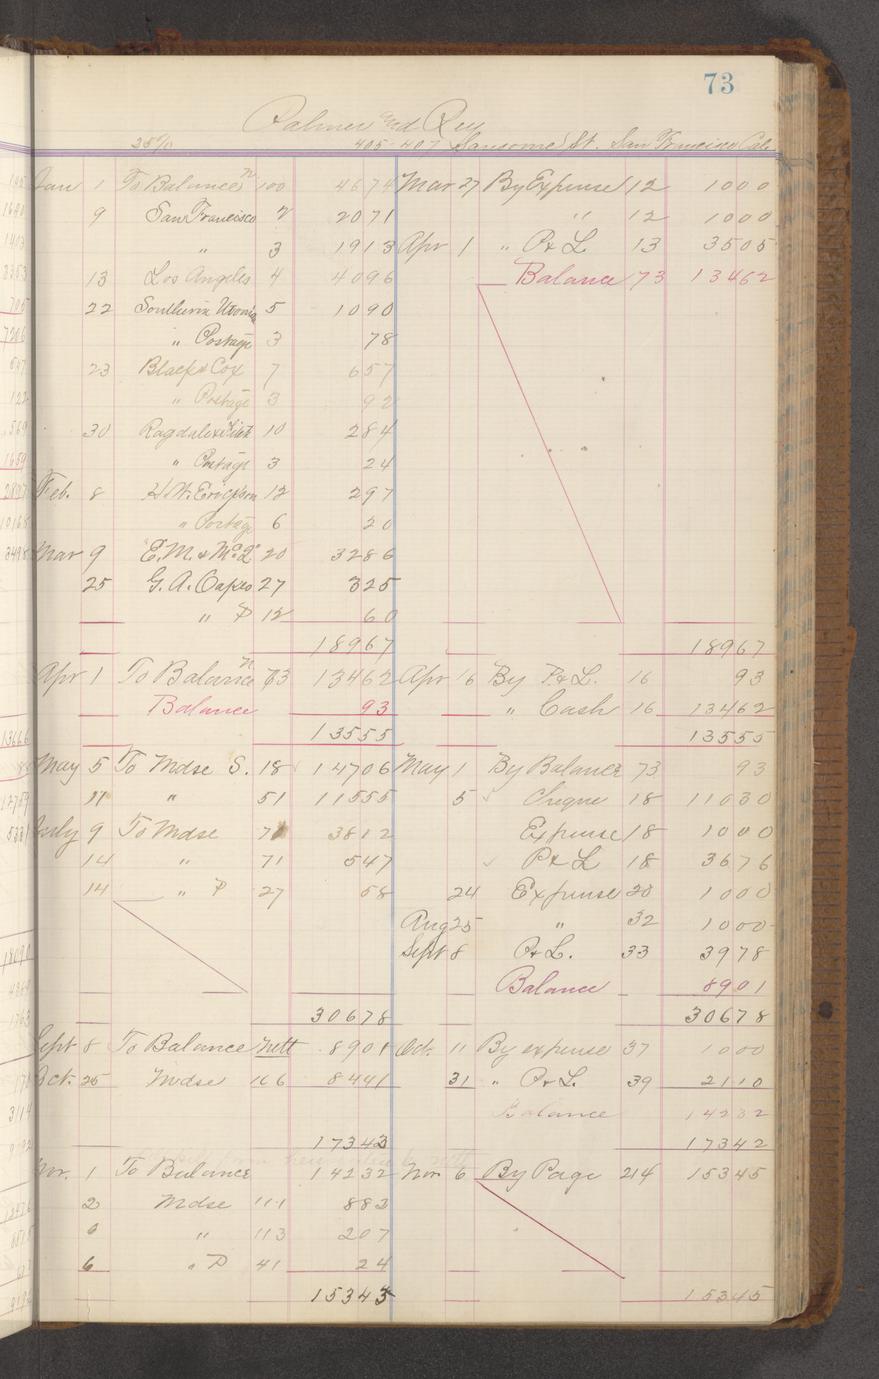 73
Palmer and Rey
25% 405-407 Sansome St. San Francisco Cal.
Jan 1 To Balance n 100 4674 Mar 27 By Expense 12 1000
9 San Francisco 2 2071 " 12 1000
" 3 1913 Apr 1 " P&L 13 3505
13 Los Angeles 4 4096 Balance 73 13462
22 Southern 5 1090
" Postage 3 78
23 Black & Cox 7 657
" Postage 3 92
30 10 284
" Postage 3 24
Feb. 8 H.W. Erickson 12 297
" Postage 6 20
Mar 9 E.M. & McL 20 3286
25 G.A. Oakes 27 325
" P 12 60
18967 18967
Apr 1 To Balance n 73 13462 Apr 16 By P&L. 16 93
Balance 93 " Cash 16 13462
13555 13555
May 5 To Mdse S. 18 14706 May 1 By Balance 73 93
11 " 51 11555 5 Cheque 18 11030
July 9 To Mdse 71 3812 Expense 18 1000
14 " 71 547 P&L 18 3676
14 " P 27 58 24 Expense 20 1000
Aug 25 " 32 1000
Sept 8 P&L. 33 3978
Balance 8901
30678 30678
Sept 8 To Balance nett 8901 Oct. 11 By expense 37 1000
Oct. 25 Mdse 106 8441 31 " P&L. 39 2110
Balance 14232
17342 17342
Nov. 1 To Balance 14232 Nov 6 By Page 214 15345
2 Mdse 111 882
6 " 113 207
6 " P 41 24
15345 15345